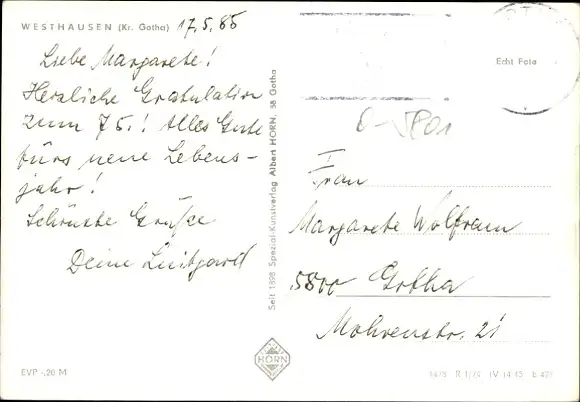 WESTHAUSEN (Kr. Gotha) 17.5.85
Liebe Margarete!
Herzliche Gratulation
zum 75.! Alles Gute
fürs neue Lebens-
jahr!
Schönste Grüße
Deine Luitgard
EVP -,20 M
Seit 1898 Spezial-Kunstverlag Albert HORN, 58 Gotha
HORN
Echt Foto
0-5801
Frau
Margarete Wolfram
5800 Gotha
Mohrenstr. 21
R 1/79 IV 14 45